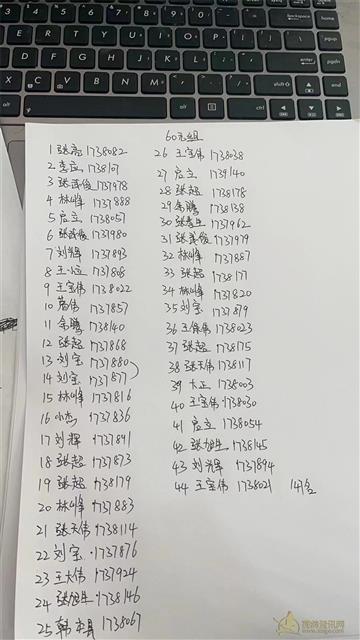 60元组
1 张亮 1738082
2 李应 1738107
3 张武俊 1737978
4 林峰 1737888
5 应立 1738057
6 张武俊 1737980
7 刘辉 1737893
8 王小应 1737808
9 王宝伟 1738022
10 詹伟 1737857
11 余腾 1738140
12 张超 1737868
13 刘宝 1737880
14 刘宝 1737877
15 林峰 1737816
16 小杰 1737836
17 刘辉 1737841
18 张超 1737873
19 张超 1738179
20 林峰 1737883
21 张天伟 1738114
22 刘宝 1737876
23 王大伟 1737924
24 张旭生 1738146
25 韩 1738067
26 王宝伟 1738038
27 应立 1739140
28 张超 1738178
29 余腾 1738138
30 张春生 1737962
31 张武俊 1737979
32 林峰 1737887
33 张超 1738171
34 林峰 1737820
35 刘宝 1737879
36 王保伟 1738023
37 张超 1738175
38 张天伟 1738117
39 大正 1738003
40 王宝伟 1738030
41 应立 1738054
42 张旭生 1738145
43 刘光辉 1737894
44 王宝伟 1738021 147名